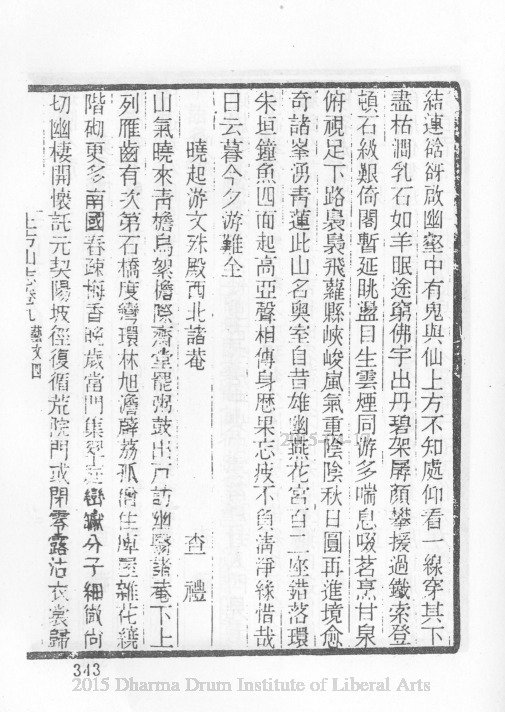 結連谽谺啟幽壑中有鬼與仙上方不知處仰看一線穿其下
盡枯澗乳石如羊眠途窮佛宇出丹碧架孱顏攀援過鐵索登
頓石級艱倚閣暫延眺盪目生雲煙同游多喘息啜茗烹甘泉
俯視足下路裊裊飛蘿縣峽峻嵐氣重陰陰秋日圓再進境愈
奇諸峯湧青蓮此山名奧室自昔雄幽燕花宮百二座錯落環
朱垣鐘魚四面起高亞聲相傳身歷果忘疲不負清淨緣惜哉
日云暮今夕游難全
曉起游文殊殿西北諸菴
查禮
山氣曉來青檐鳥絮檐際齋堂罷粥鼓出戸訪幽鄰諸菴下上
列雁齒有次第石橋度彎環林旭澹薜荔孤僧生庳屋雜花繞
階砌更多南國春疎梅香晚歲當門集巒分子細微尚
切幽棲開懷託元契陽坡徑復循荒院門或閉零露沾衣裳歸
上方山志卷九 藝文四
343
2015 Dharma Drum Institute of Liberal Arts